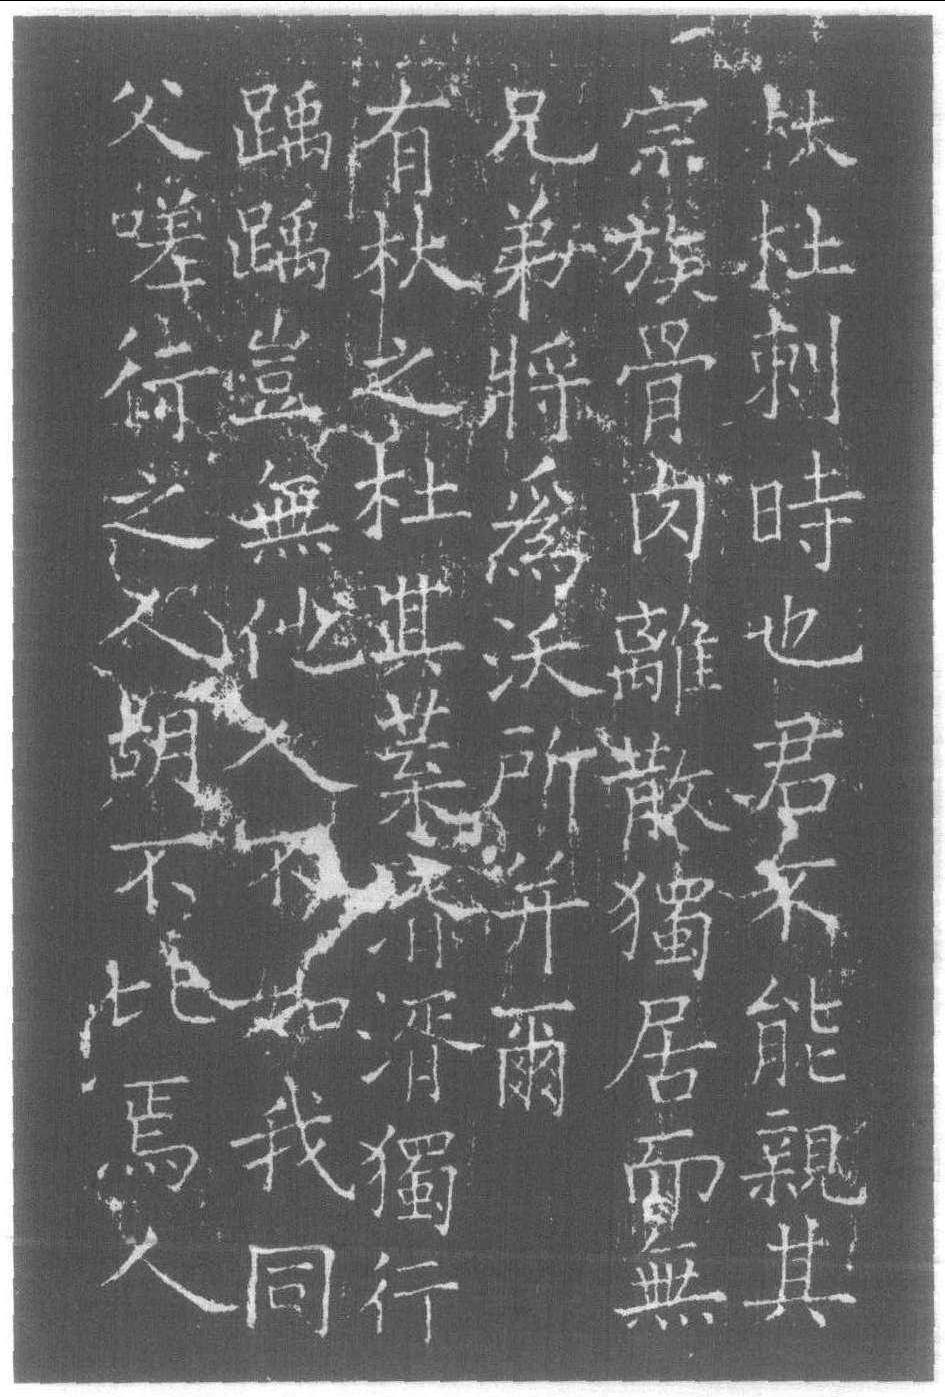 杕杜刺時也君不能親其
宗族骨肉離散獨居而無
兄弟將爲沃所并爾
有杕之杜其葉湑湑獨行
踽踽豈無他人不如我同
父嗟行之人胡不比焉人